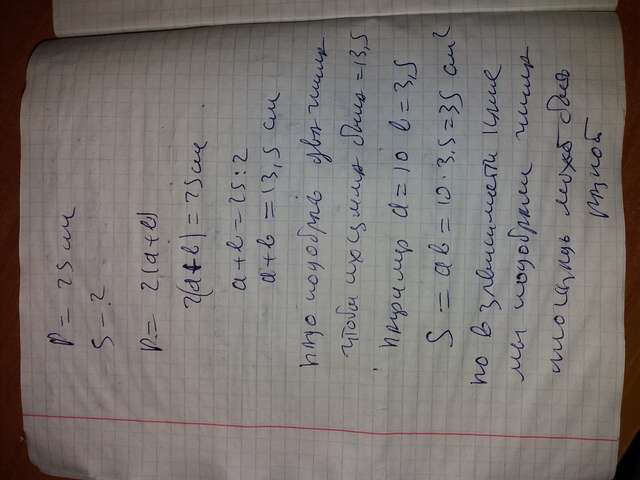 P = 25 см
S = ?
P = 2(а+в)
2(а+в) = 25 см
а+в = 25:2
а+в = 13,5 см
надо подобрать два числа
чтобы их сумма была = 13,5
например а = 10 в = 3,5
S = ав = 10 · 3,5 = 35 см²
но в зависимости какие
мы подобрали числа
площадь может быть
разной